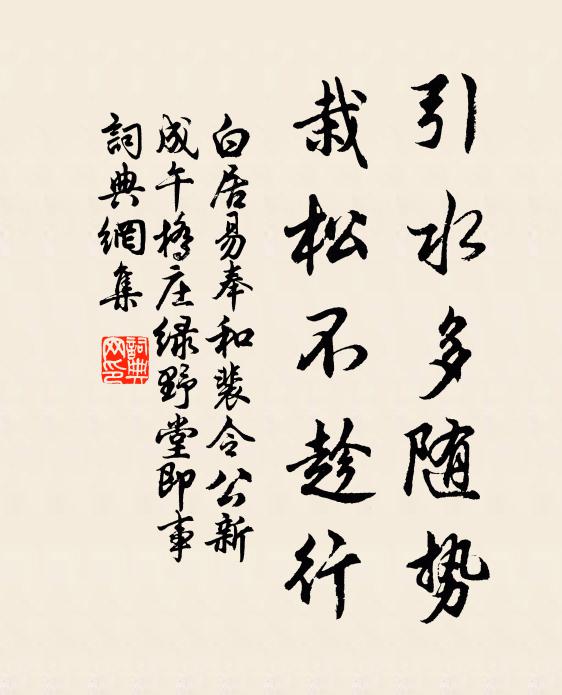 引水多随势
栽松不趁行
白居易奉和裴令公新
成午橋庄緑野堂即事
詞典網集
詞典網印